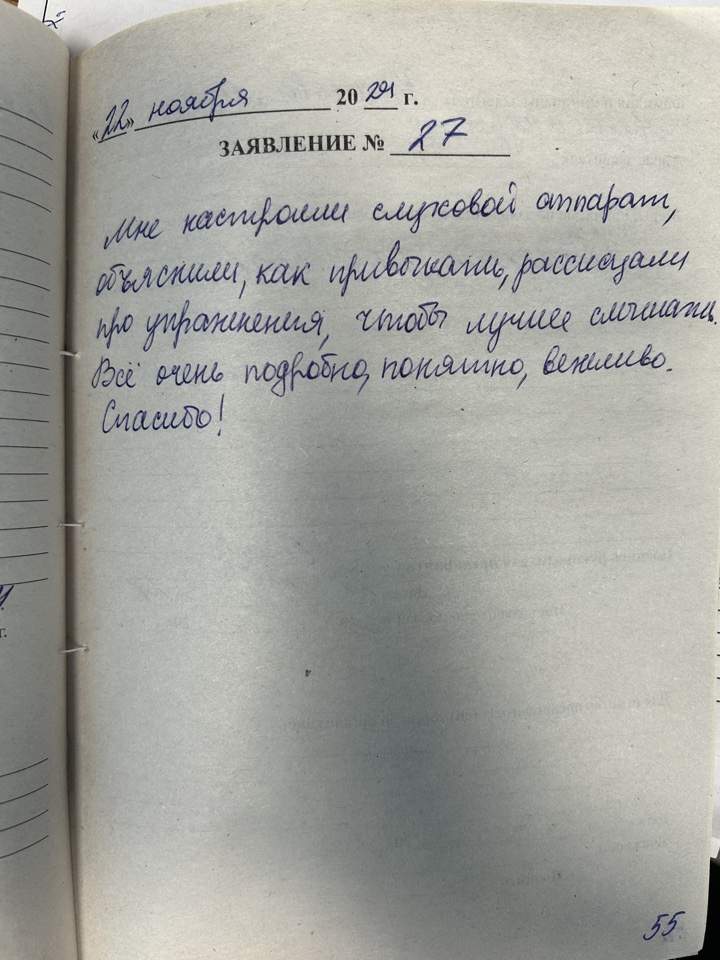 «22» ноября 20 г.
ЗАЯВЛЕНИЕ № 27
Мне настроили слуховой аппарат,
объяснили, как привыкать, рассказали
про упражнения, чтобы лучше слышать.
Всё очень подробно, понятно, вежливо.
Спасибо!
55